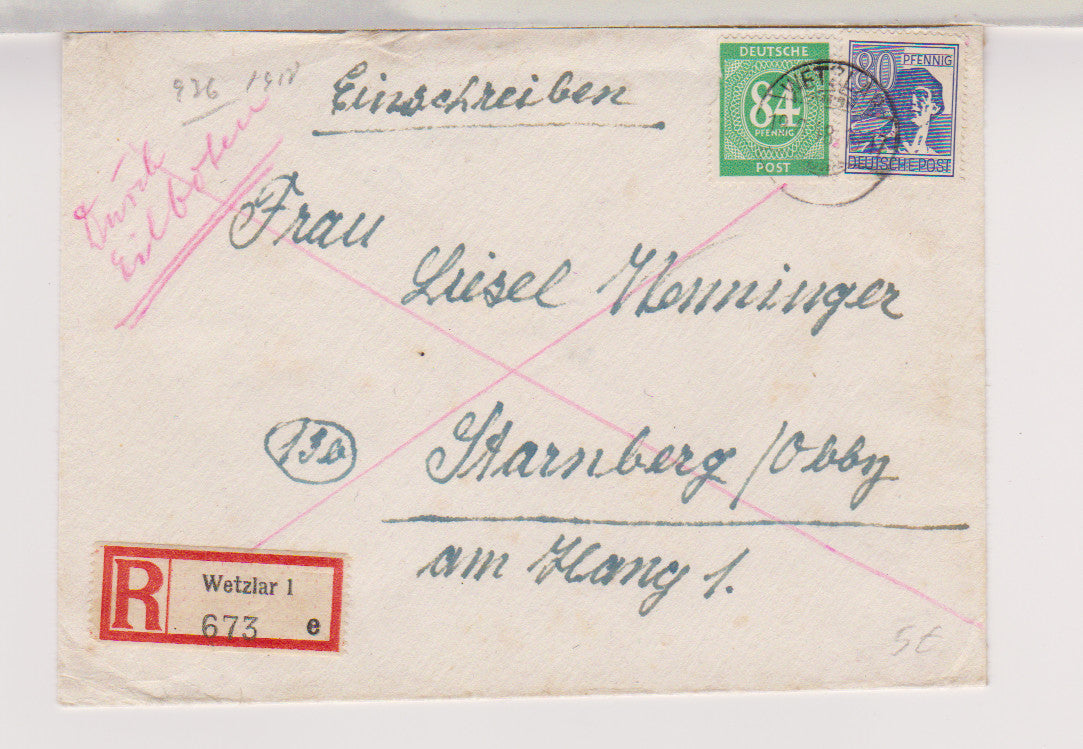 936 1918
Einschreiben
Durch
Eilboten
DEUTSCHE
84
PFENNIG
POST
80 PFENNIG
DEUTSCHE POST
WETZLAR
Frau
Liesel Henninger
13b
Starnberg / Obby
am Hang 1.
R
Wetzlar 1
673 e
5€